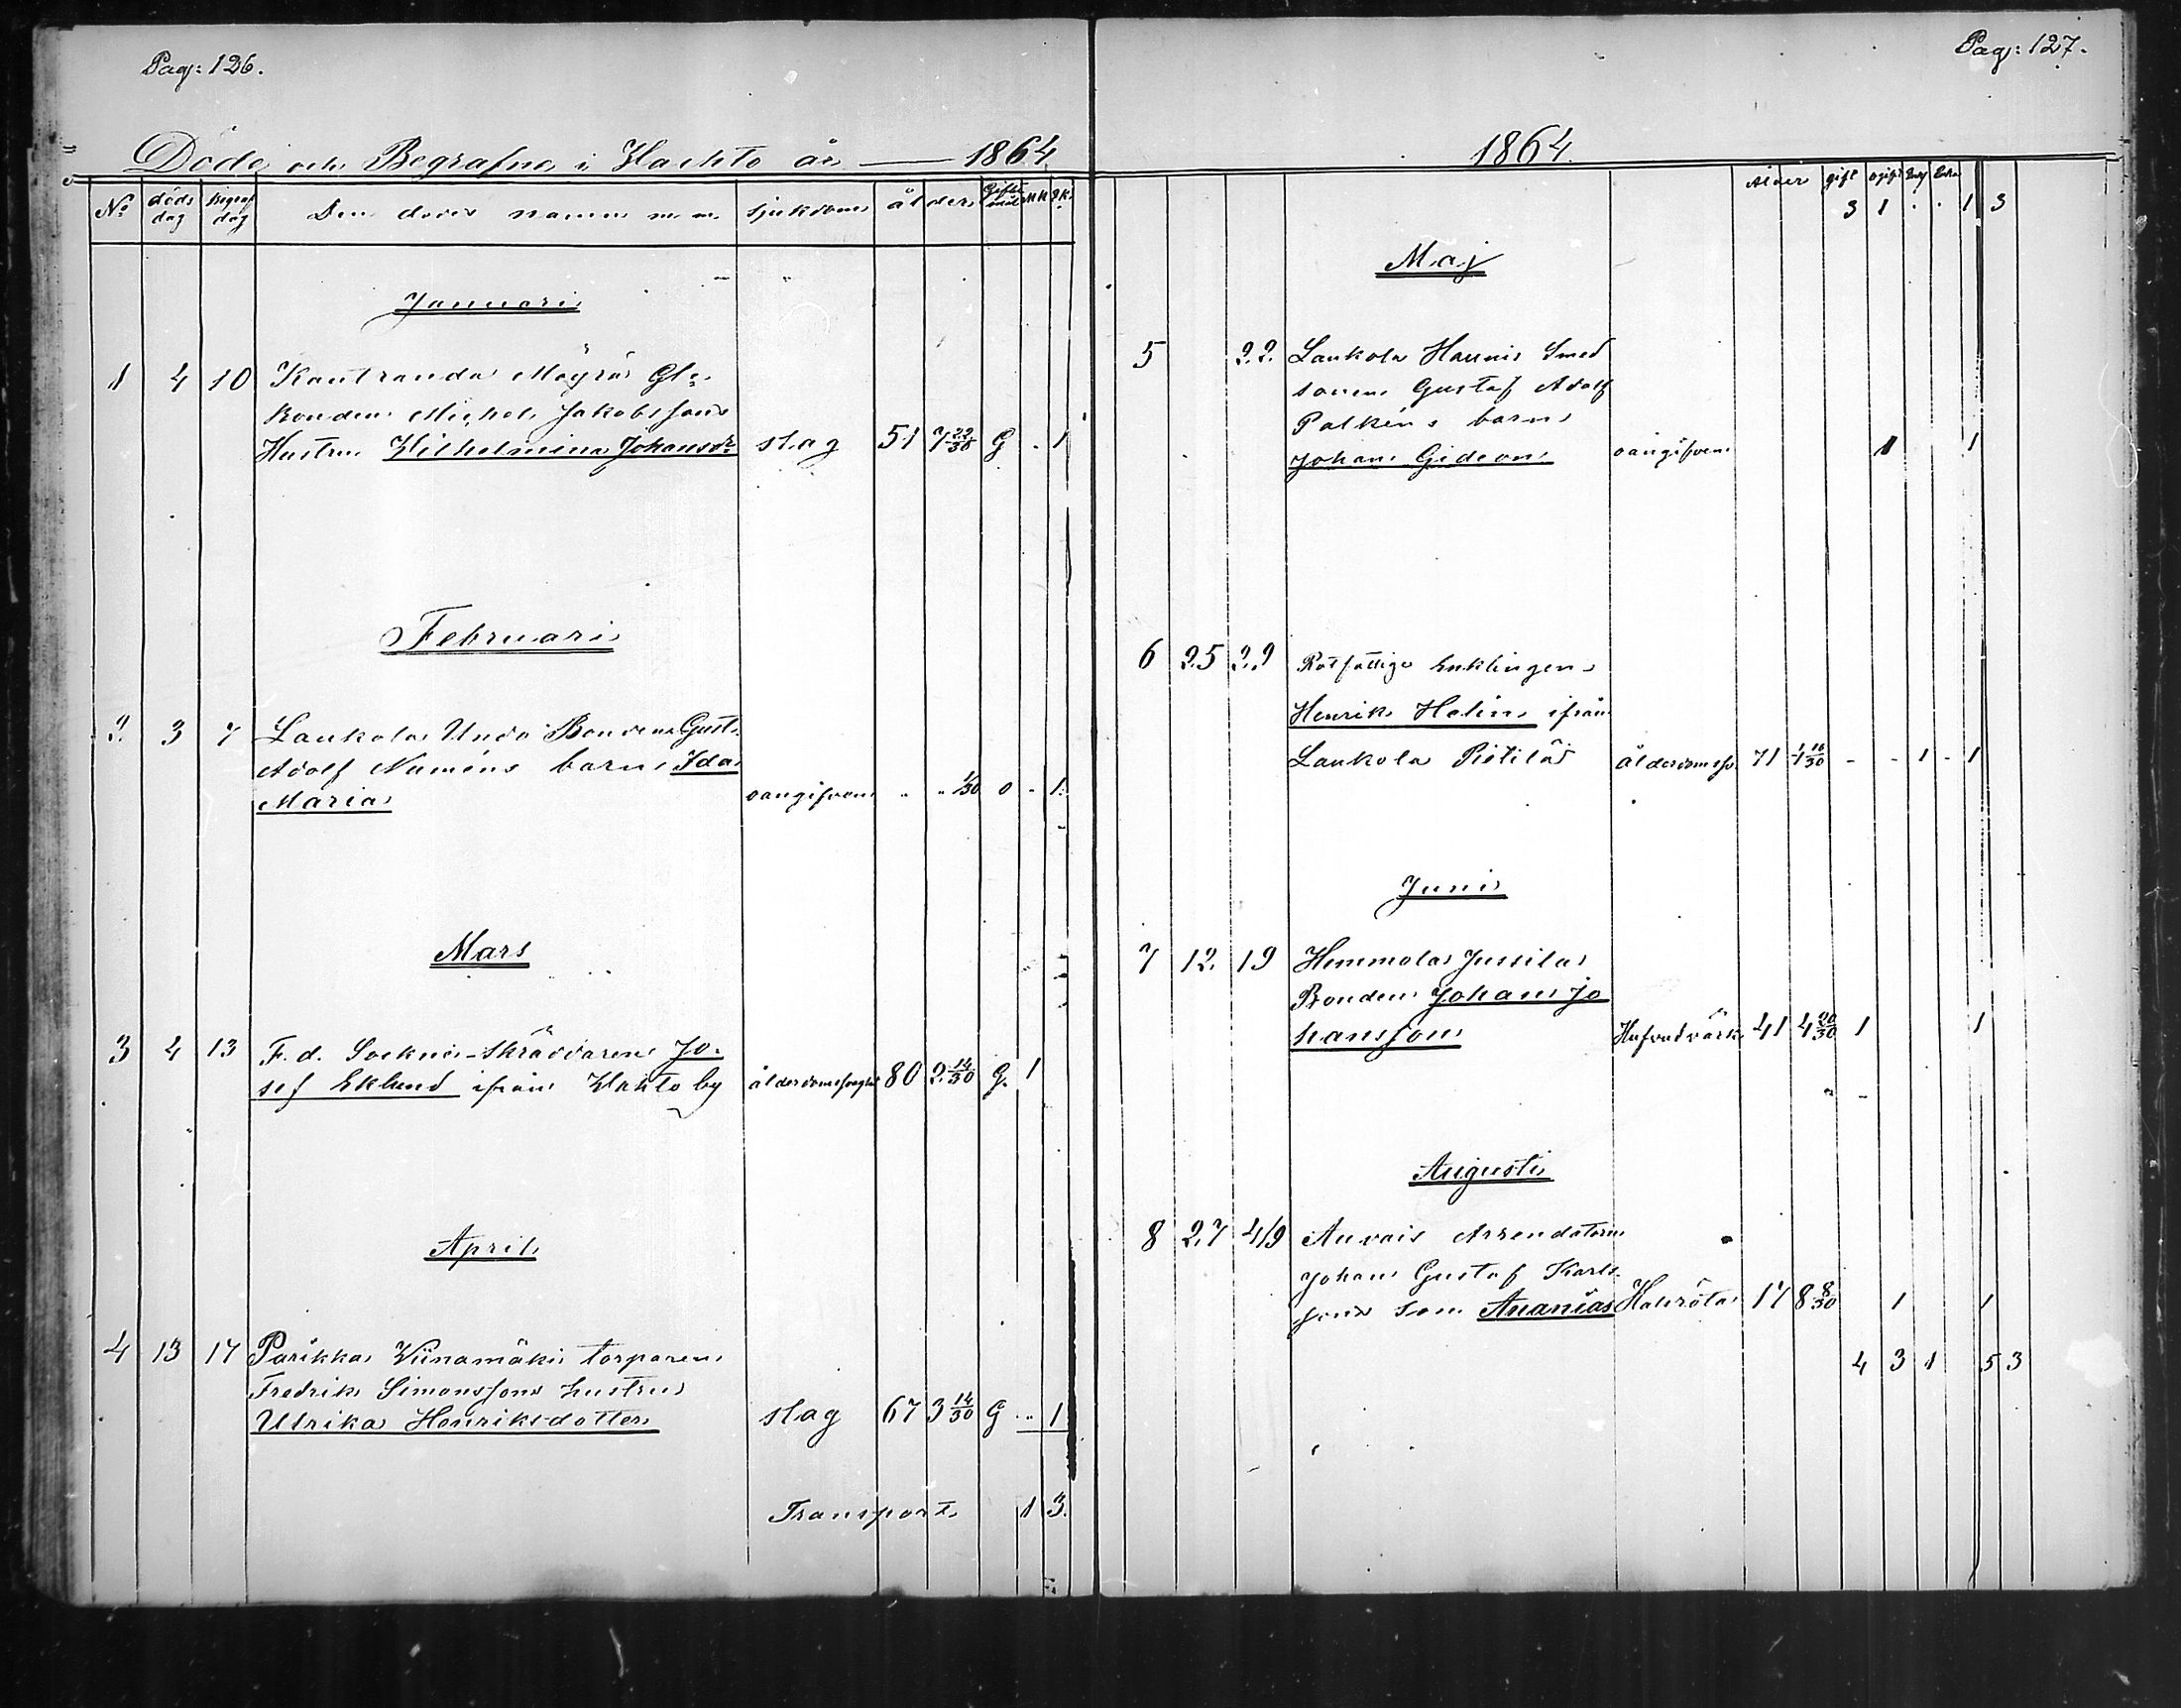 Pag: 126.
Döde och Begrafne i Hachto år — 1864
No döds dag Begraf dag Den dödes namn m. m. sjukdom ålder Gifte mål M K Q K
Januari
1 4 10 Kantranda Mäyrä Gle
Bonden Michel Jakobssons
Hustru Wilhelmina Johansdr slag 51 7 22/30 G - 1
Februari
2 3 7 Laukola Undo Bonden Gust.
Adolf Numéns barn Ida
Maria oangifven " " 1/30 o - 1
Mars
3 4 13 F. d. Sockne-Skräddaren Jo-
sef Eklund ifrån Hahto by ålderdomsbräckl 80 2 14/30 G. 1
April
4 13 17 Parikka Wiinamäki torparen
Fredrik Simonssons hustru
Ulrika Henriksdotter slag 67 3 14/30 G " 1
Transport 1 3.
Pag: 127.
1864.
Ålder gift ogift Enkl Enka
3 1 . . 1 3
Maj
5 22 Laukola Hannis Smed
sonen Gustaf Adolf
Palkéns barn
Johan Gideon oangifven 1 1
6 25 29 Rotfattige Enklingen
Henrik Helin ifrån
Laukola Pietilä ålderdomssv. 71 4 16/30 - - 1 - 1
Juni
7 12 19 Hemmola Jussila
Bonden Johan Jo
hansson Hufvudvärk 41 4 20/30 1 1
Augusti
8 27 4/9 Auvais Arrendatorn
Johan Gustaf Karls-
sons son Ananias Halsröta 17 8 8/30 1 1
4 3 1 5 3